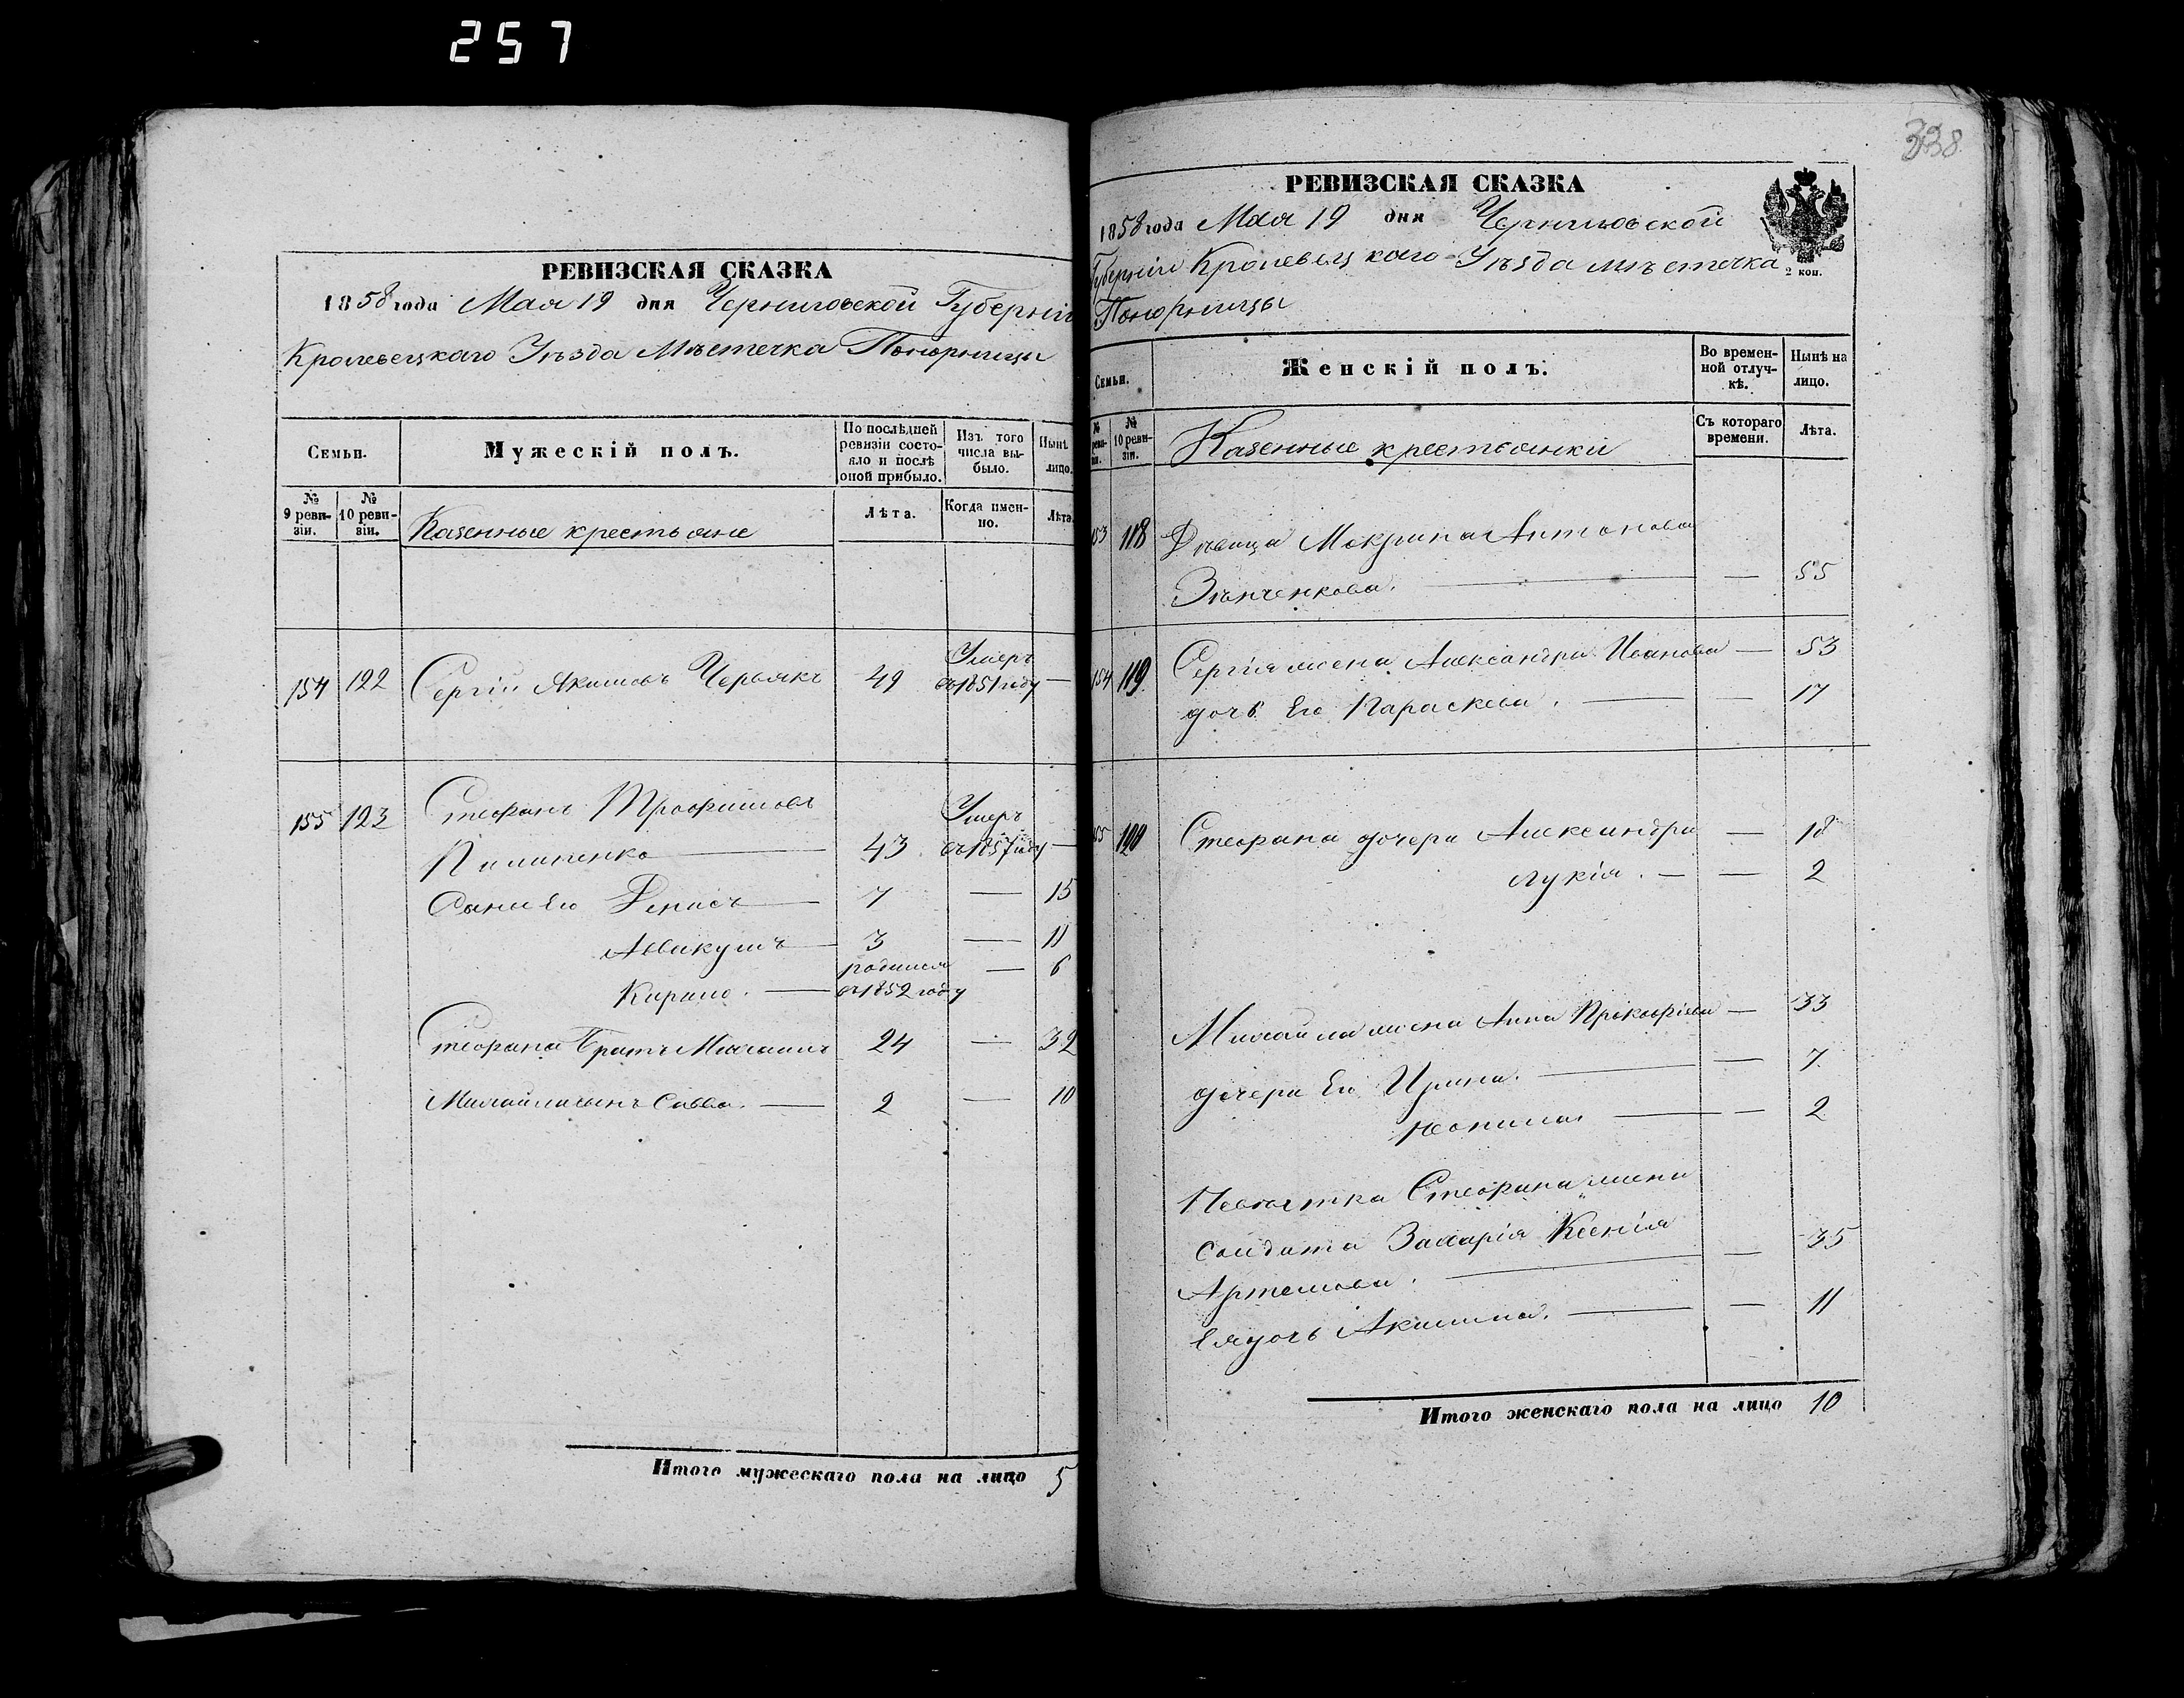 257
РЕВИЗСКАЯ СКАЗКА
1858 года Мая 19 дня Черниговской Губерніи
Кролевецкаго Уѣзда Мѣстечка Понорницы
Семьи.
Мужескій полъ.
По послѣдней ревизіи состояло и послѣ оной прибыло.
Изъ того числа выбыло.
Нынѣ лицо.
№ 9 ревизіи.
№ 10 ревизіи.
Казенные крестьяне
Лѣта.
Когда именно.
Лѣта.
154 122 Сергій Акимовъ Червякъ 49 Умеръ въ 1851 году —
155 123 Стефанъ Трофимовъ
Пилипенко — 43 Умеръ въ 1857 году —
Сыни Его Денисъ — 7 — 15
Аввакумъ — 3 — 11
Кирило. — родился въ 1852 году — 6
Стефана братъ Михаилъ 24 — 32
Михайла сынъ Савва. — 2 — 10
Итого мужескаго пола на лицо 5
338
РЕВИЗСКАЯ СКАЗКА
1858 года Мая 19 дня Черниговской
Губерніи Кролевецкаго Уѣзда мѣстечка
Понорницы
2 коп.
Семьи.
Женскій полъ.
Во временной отлучкѣ.
Нынѣ на лицо.
№ 10 ревизіи.
Казенные крестьянки
Съ котораго времени.
Лѣта.
153 118 Дѣвица Мокрина Антонова
Зѣнченкова. — — 55
154 119 Сергія жена Александра Иванова — 53
дочь Его Параскева. — 17
155 120 Стефана дочери Александра — 18
Лукія. — — 2
Михайла жена Анна Прокофіева — 33
дочери Его Ирина. — — 7
— — 2
Невѣстка Стефана жена
солдата Захарія Ксенія
Артемова. — — 35
Ея дочь Акилина. — — 11
Итого женскаго пола на лицо 10